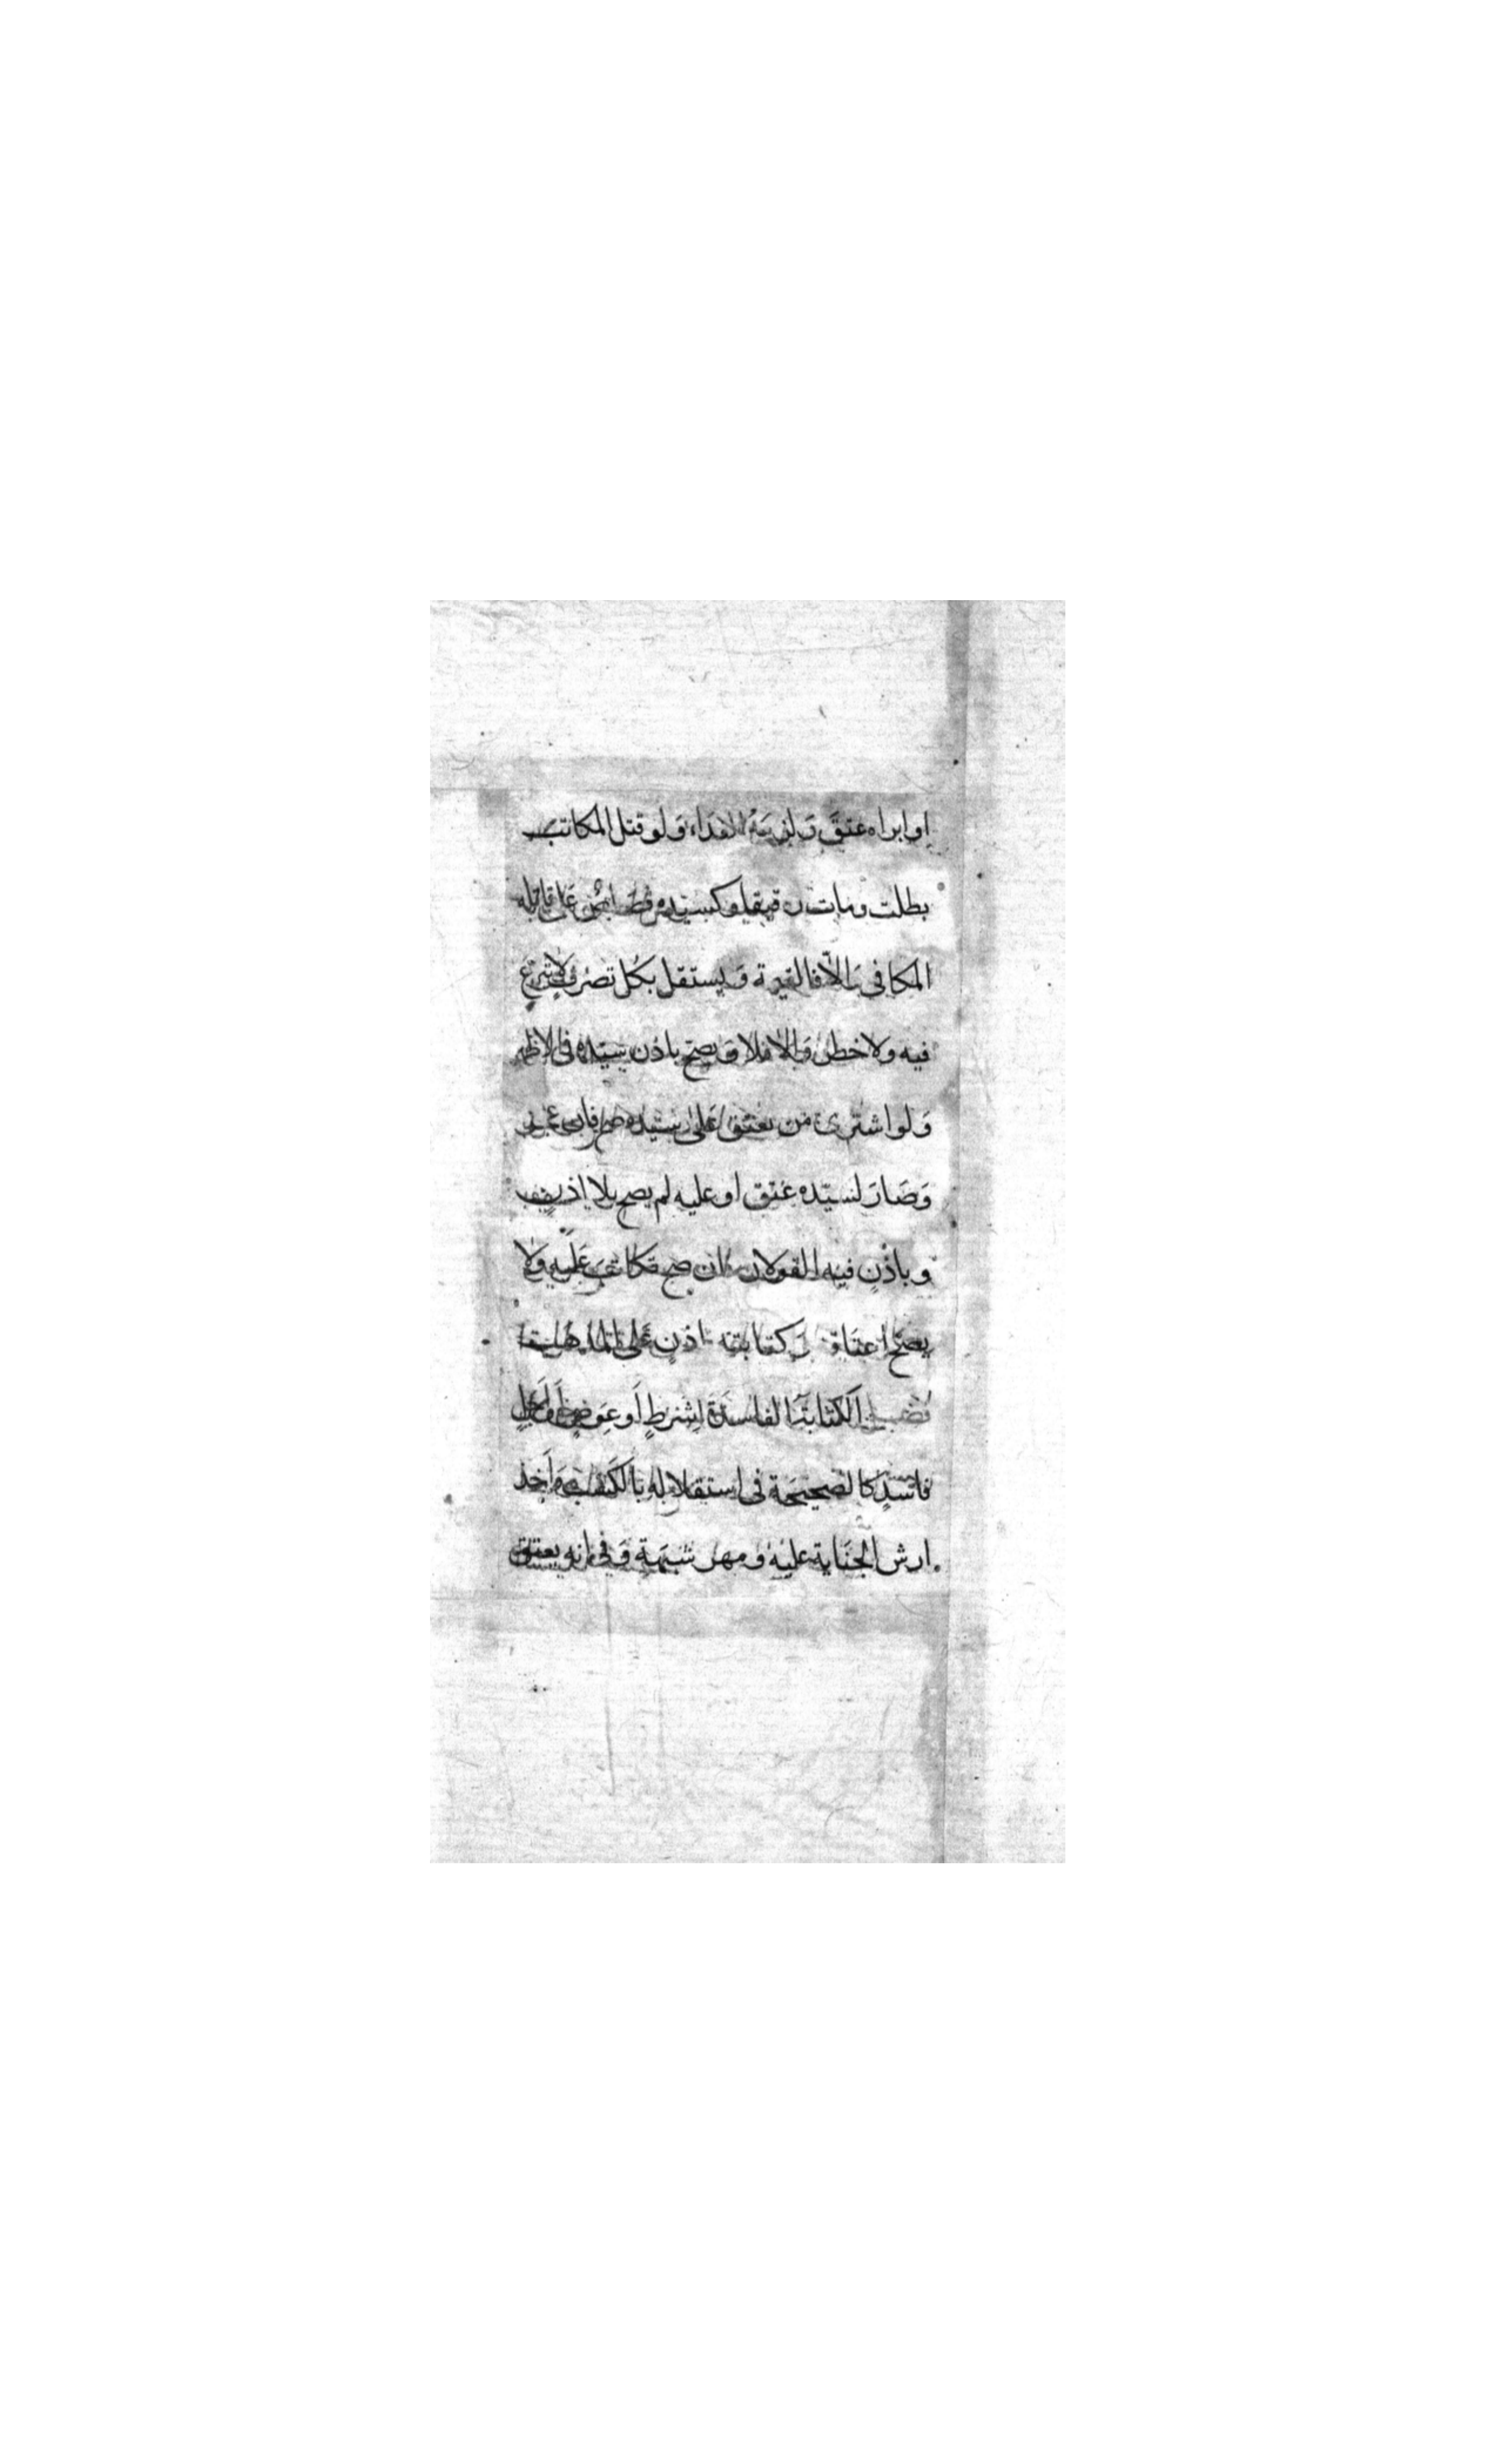 او ابراه عتق ولزمه الفداء ولو قتل المكاتب
بطلت ومات رقيقا ولسيده قصاص على قاتله
المكافى والا فالقيمة ويستقل بكل تصرف لا تبرع
فيه ولا خطر والا فلا ويصح باذن سيده فى الاظهر
ولو اشترى من يعتق على سيده صح فان عجز
وصار لسيده عتق او عليه لم يصح بلا اذن
وباذن فيه القولان فان صح تكاتب عليه ولا
يصح اعتاقه وكتابته باذن على المذهب
فصل الكتابة الفاسدة لشرط او عوض او اجل
فاسد كالصحيحة فى استقلاله بالكسب واخذ
ارش الجناية عليه ومهر شبهة وفى انه يعتق